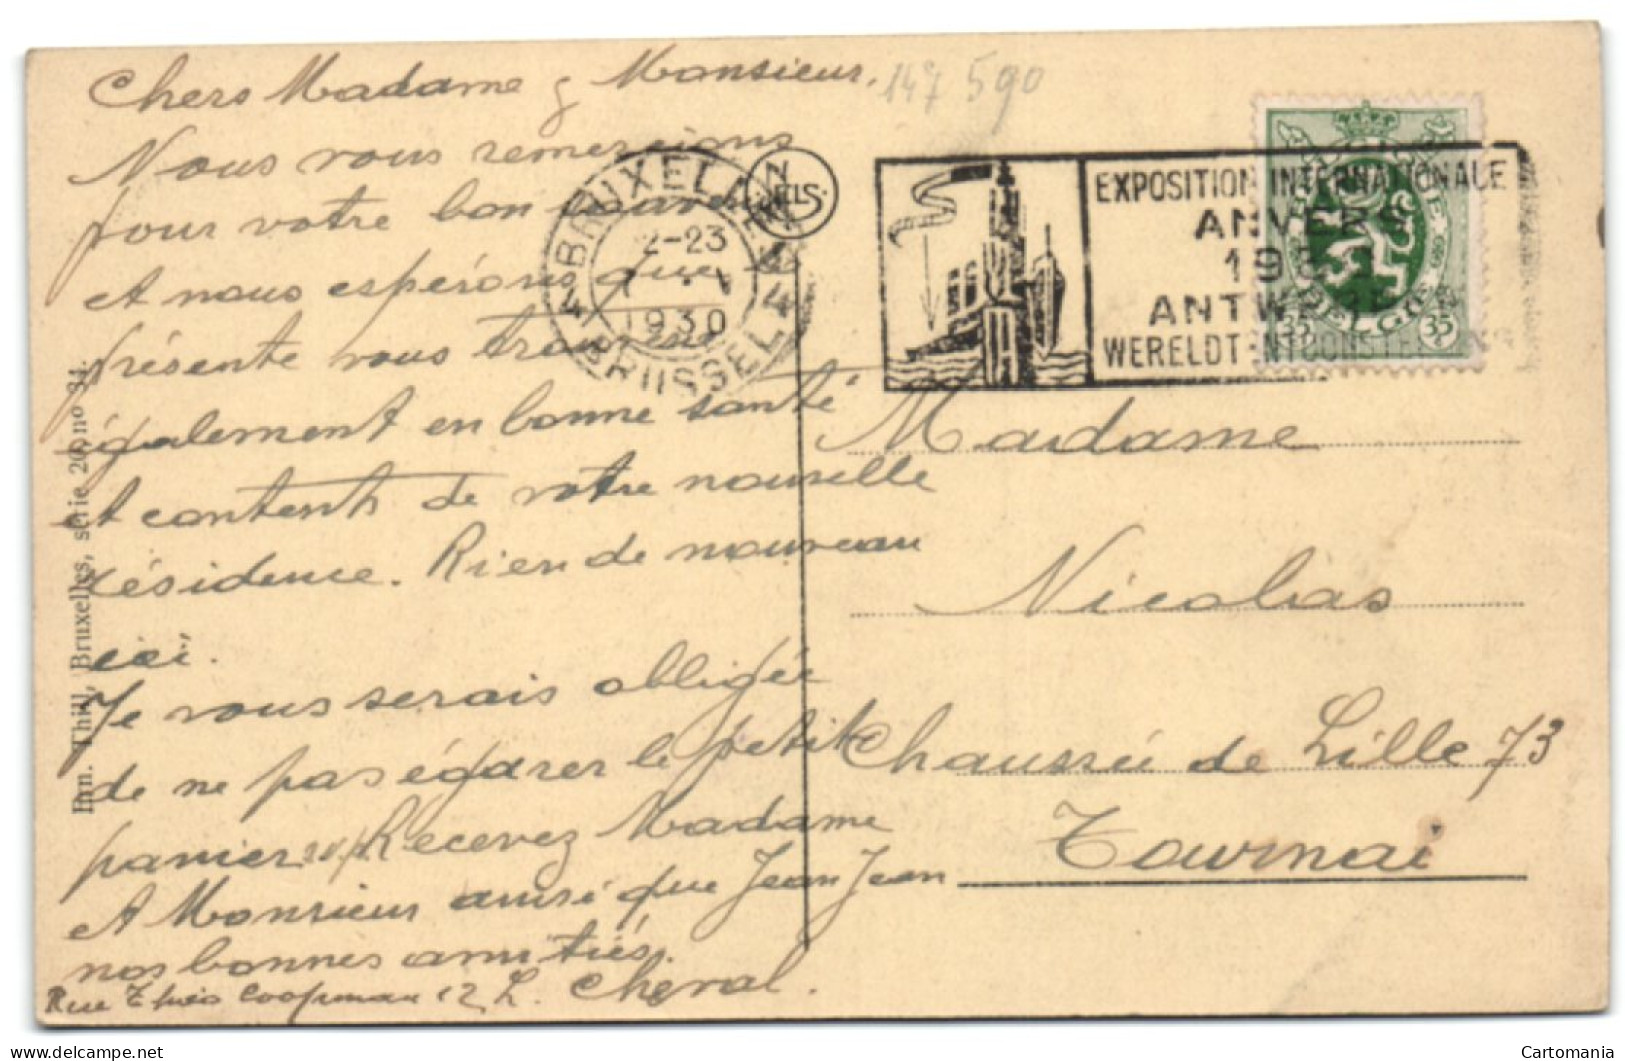 Chers Madame & Monsieur,
147 590
Nous vous remercions
pour votre bon
et nous espérons que la
présente vous trouvera
également en bonne santé
et contents de votre nouvelle
résidence. Rien de nouveau
ici.
Je vous serais obligée
de ne pas égarer le petit
panier. Recevez Madame
et Monsieur ainsi que Jean Jean
nos bonnes amitiés.
L. Cheval.
Rue Coopman 12
Imn. Thill, Bruxelles, série 20, no 31.
BRUXELLES
BRUSSEL
NELS
1930
EXPOSITION INTERNATIONALE
ANVERS
19
ANTWERPEN
WERELDTENTOONSTELLING
35 BELGIE 35
Madame
Nicolas
Chaussée de Lille 73
Tournai
Cartomania